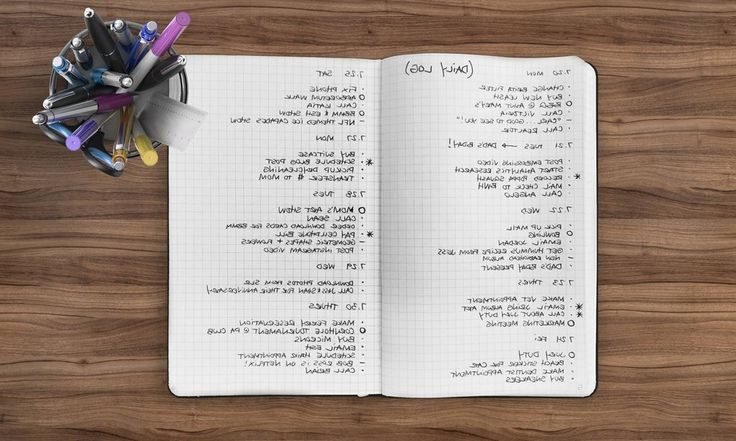 (DAILY LOG)
7.20 MON
· CHANGE BRITA FILTER
· BUY NEW LEASH
O BBQ @ AUNT MARY'S
· CALL VICTORIA
- "CARL... GOOD TO SEE YOU"
· CALL REALTOR
7.21 TUES → DAD'S BDAY!
· POST EXPRESSING VIDEO
· START ANALYTICS RESEARCH
* · RECORD SQUASH
· MAIL CHECK TO BWH
· CALL ANGELO
7.22 WED
· PICK UP MAIL
O BOWLING
· EMAIL JORDAN
· GET HUMMUS RECIPE FROM JESS
- NEW RADIOHEAD ALBUM
· DAD'S BDAY PRESENT
7.23 THURS
· MAKE VET APPOINTMENT
* · EMAIL JENG ALBUM ART
* · CALL ABOUT JURY DUTY
O MARKETING MEETING
7.24 FRI
O JURY DUTY
· BEACH STICKER FOR CAR
· MAKE DENTIST APPOINTMENT
· BUY SNEAKERS
7.25 SAT
· FIX PHONE
O ARBORETUM WALK
· CALL KATIA
O BBNM X ESH SHOW
- NFL THEMED ICE CAPADES SHOW
7.27 MON
· BUY SUITCASE
* · SCHEDULE BLOG POST
· PICKUP DRYCLEANING
· TRANSFER $ TO MOM
7.28 TUES
O MOM'S ART SHOW
· CALL SEAN
· ORDER DOWNLOAD CARDS FOR BBNM
* · PAY CELLPHONE BILL
- GEOMETRIC SHAPES + RUNNERS
· POST INSTAGRAM VIDEO
7.29 WED
· DOWNLOAD PHOTOS FROM SLR
· CALL JAX & SEAN FOR THEIR ANNIVERSARY
7.30 THURS
· MAKE FERRY RESERVATION
O CORNHOLE TOURNAMENT @ PA CLUB
· BUY MICRONS
· EMAIL ESH
· SCHEDULE HAIR APPOINTMENT
- BOB ROSS IS ON NETFLIX!
· CALL BRIAN